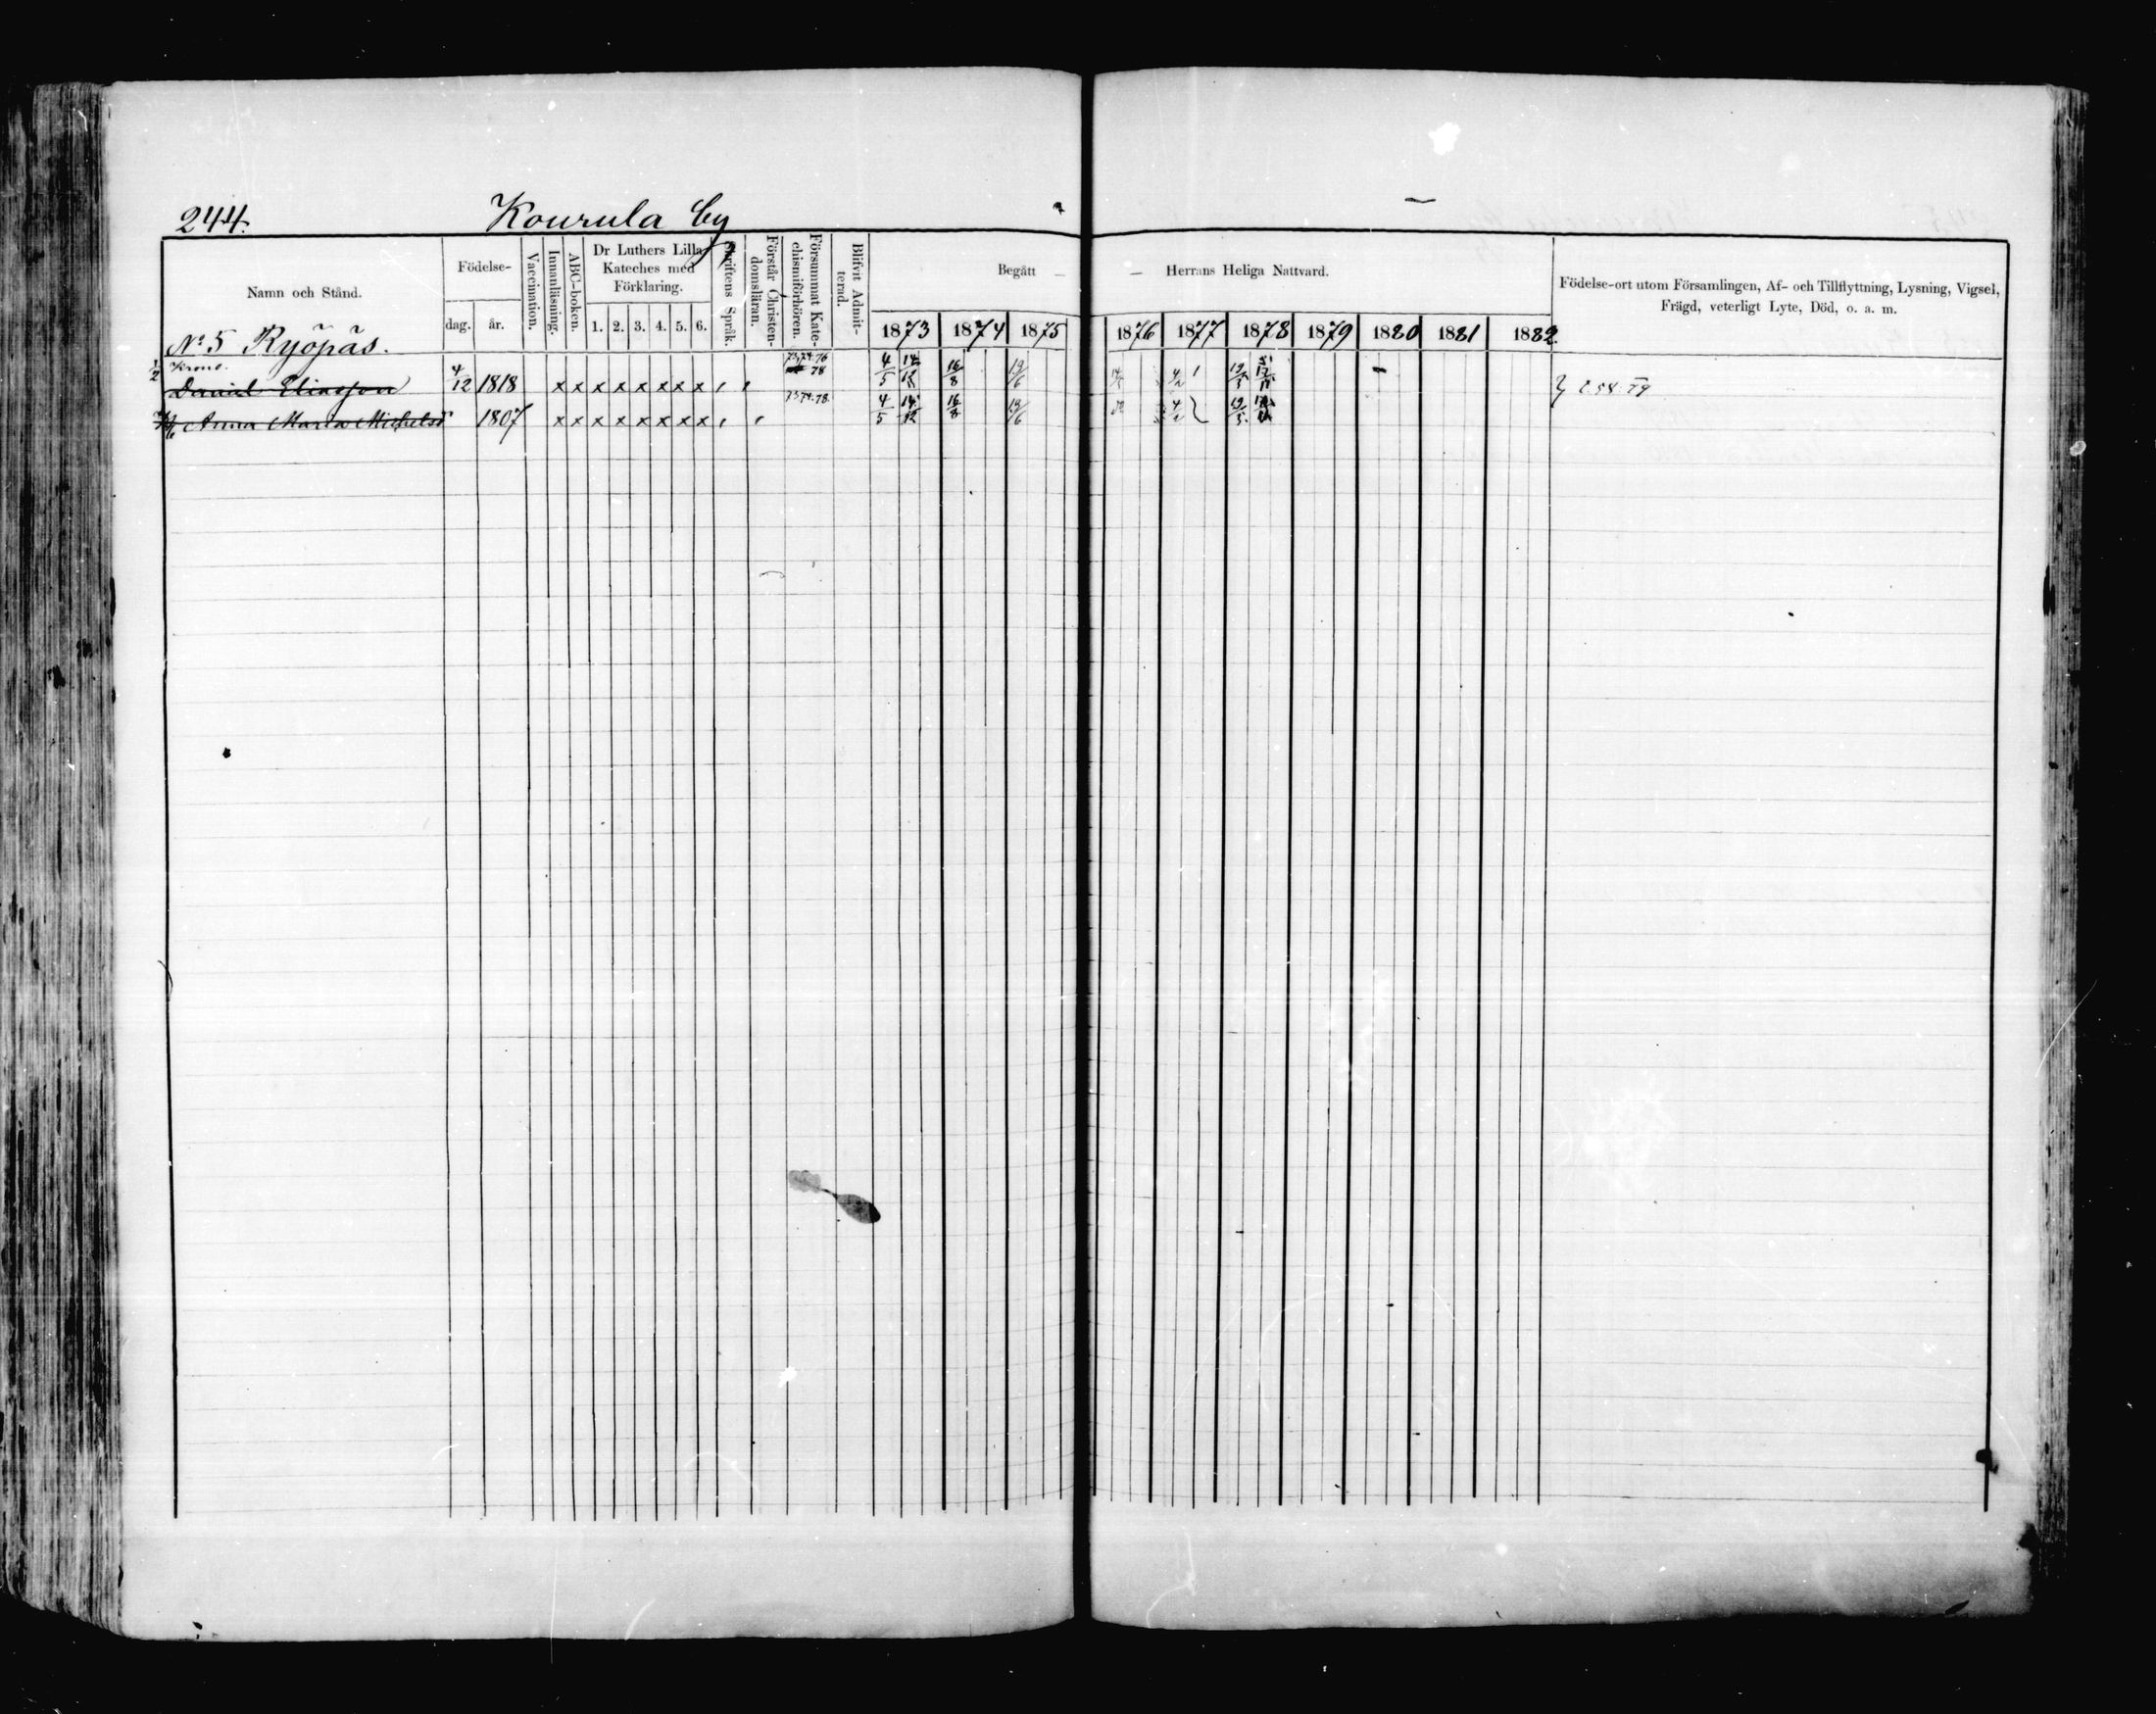 244.
Kourula by
Namn och Stånd.
Födelse-
dag.
år.
Vaccination.
Innanläsning.
ABC-boken.
Dr Luthers Lilla
Kateches med
Förklaring.
1. 2. 3. 4. 5. 6.
Skriftens Språk.
Förstår Christen-
domsläran.
Försummat Kate-
chismiförhören.
Blifvit Admit-
terad.
Begått — — Herrans Heliga Nattvard.
1873 1874 1875 1876 1877 1878 1879 1880 1881 1882
Födelse-ort utom Församlingen, Af- och Tillflyttning, Lysning, Vigsel,
Frägd, veterligt Lyte, Död, o. a. m.
No 5 Ryöpäs.
1/2
Daniel Eliasson 4/12 1818 x x x x x x x x 73,74.76 78 4/5 14/12 16/8 19/6 4/2 19/5
Anna Maria Michelsd 1807 x x x x x x x x 73.74.78. 4/5 14/12 16/8 19/6 4/2 19/5
258.79